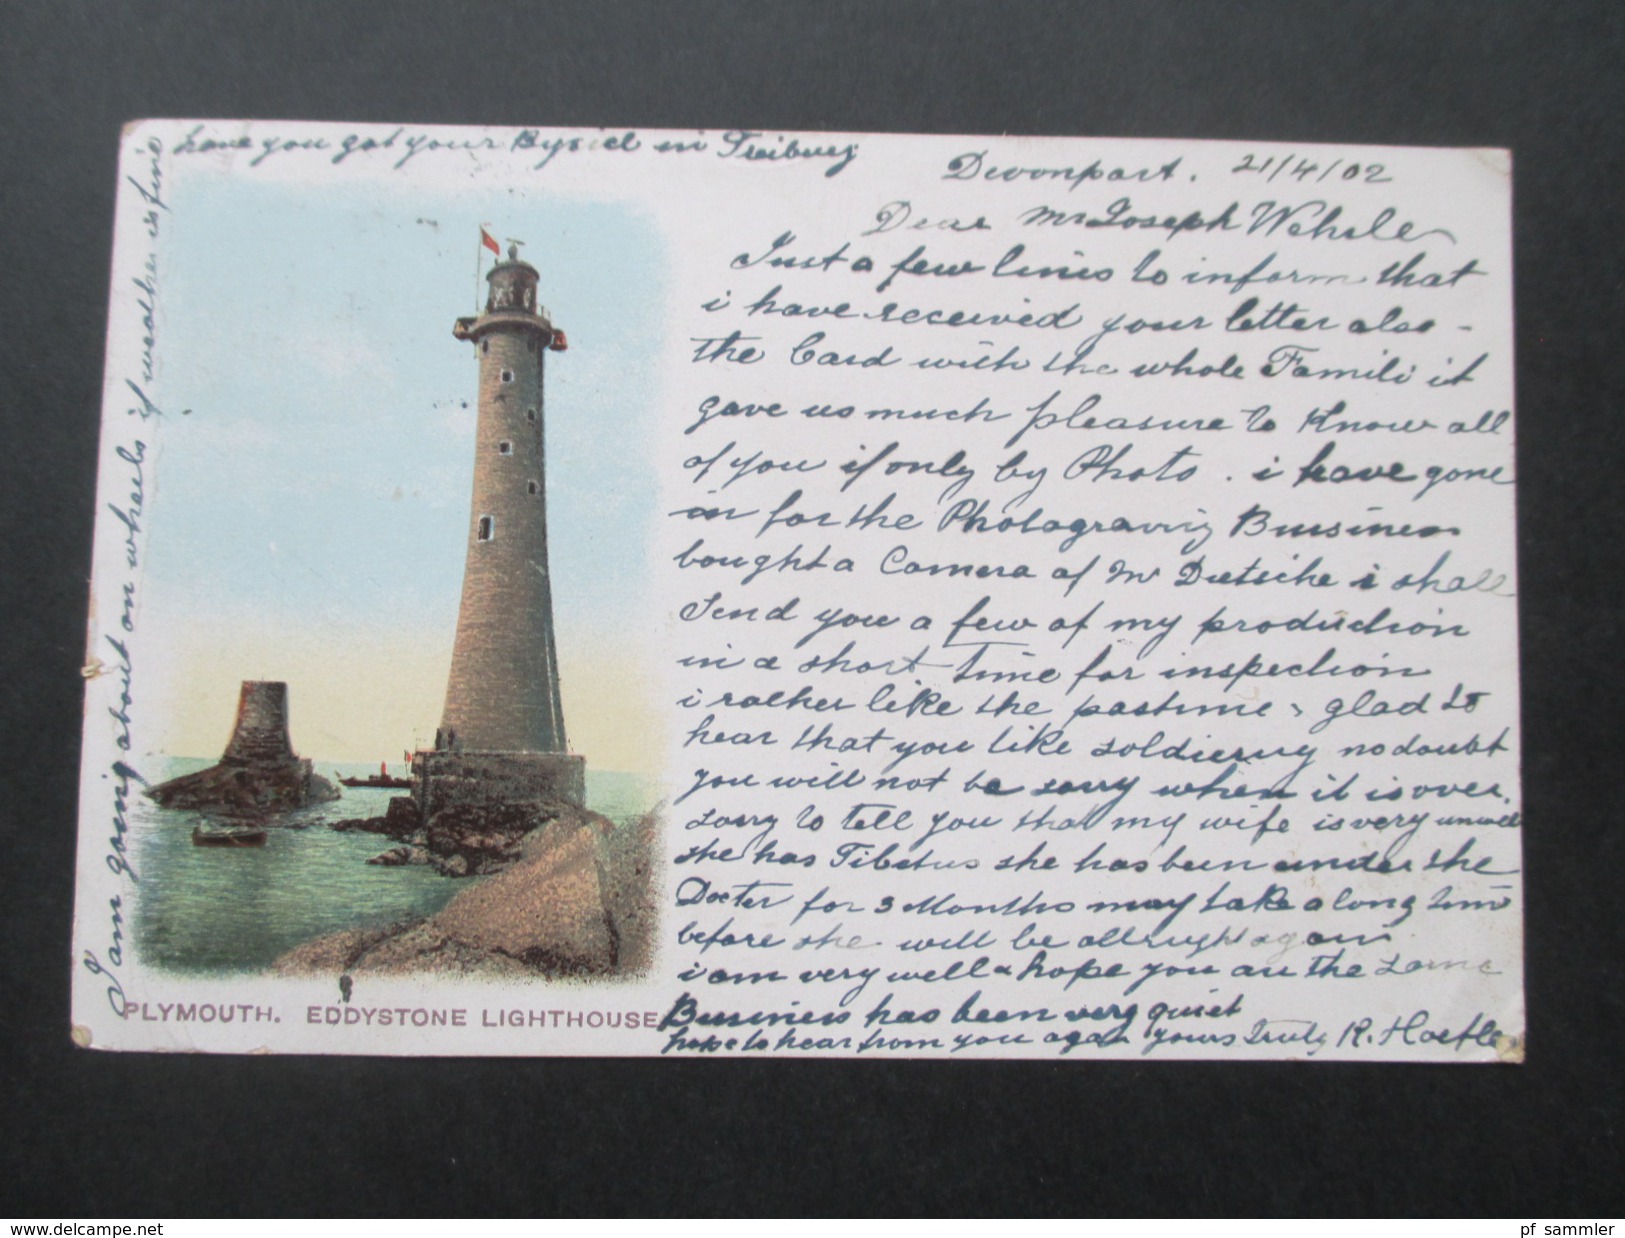 Devonport. 21/4/02
Dear Mr Joseph Wehrle
Just a few lines to inform that
i have received your letter also -
the Card with the whole Famili it
gave us much pleasure to Know all
of you if only by Photo. i have gone
in for the Photograving Bussiness
bought a Camera of Mr Dietsche i shall
Send you a few of my production
in a short time for inspection
i rather like the pastime, glad to
hear that you like soldiering no doubt
you will not be sorry when it is over.
sorry to tell you that my wife is very unwell
she has she has been under the
Docter for 3 Months may take a long time
before she will be allright again
i am very well & hope you are the same
Bussiness has been very quiet
hope to hear from you again yours Truly R. Hoefle
I am going about on wheels if weather is fine
have you got your Bysicl in Freiburg
PLYMOUTH. EDDYSTONE LIGHTHOUSE
www.delcampe.net
pf_sammler